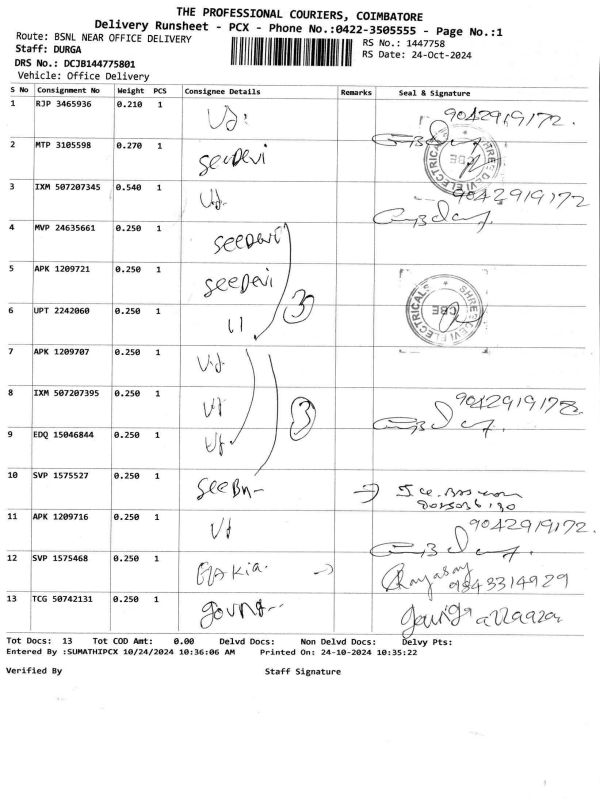 THE PROFESSIONAL COURIERS, COIMBATORE
Delivery Runsheet - PCX - Phone No.:0422-3505555 - Page No.:1
Route: BSNL NEAR OFFICE DELIVERY
RS No.: 1447758
Staff: DURGA
RS Date: 24-Oct-2024
DRS No.: DCJB144775801
Vehicle: Office Delivery
S No Consignment No Weight PCS Consignee Details Remarks Seal & Signature
1 RJP 3465936 0.210 1 9042919172.
2 MTP 3105598 0.270 1 seeDevi
SHREE DEVI ELECTRICALS CBE
3 IXM 507207345 0.540 1 9042919172
4 MVP 24635661 0.250 1 seeDevi
5 APK 1209721 0.250 1 seeDevi
3
SHREE DEVI ELECTRICALS CBE
6 UPT 2242060 0.250 1 11
7 APK 1209707 0.250 1
8 IXM 507207395 0.250 1 9042919172
3
9 EDQ 15046844 0.250 1
10 SVP 1575527 0.250 1
11 APK 1209716 0.250 1 9042919172.
12 SVP 1575468 0.250 1 9343314929
13 TCG 50742131 0.250 1
Tot Docs: 13 Tot COD Amt: 0.00 Delvd Docs: Non Delvd Docs: Delvy Pts:
Entered By :SUMATHIPCX 10/24/2024 10:36:06 AM Printed On: 24-10-2024 10:35:22
Verified By Staff Signature